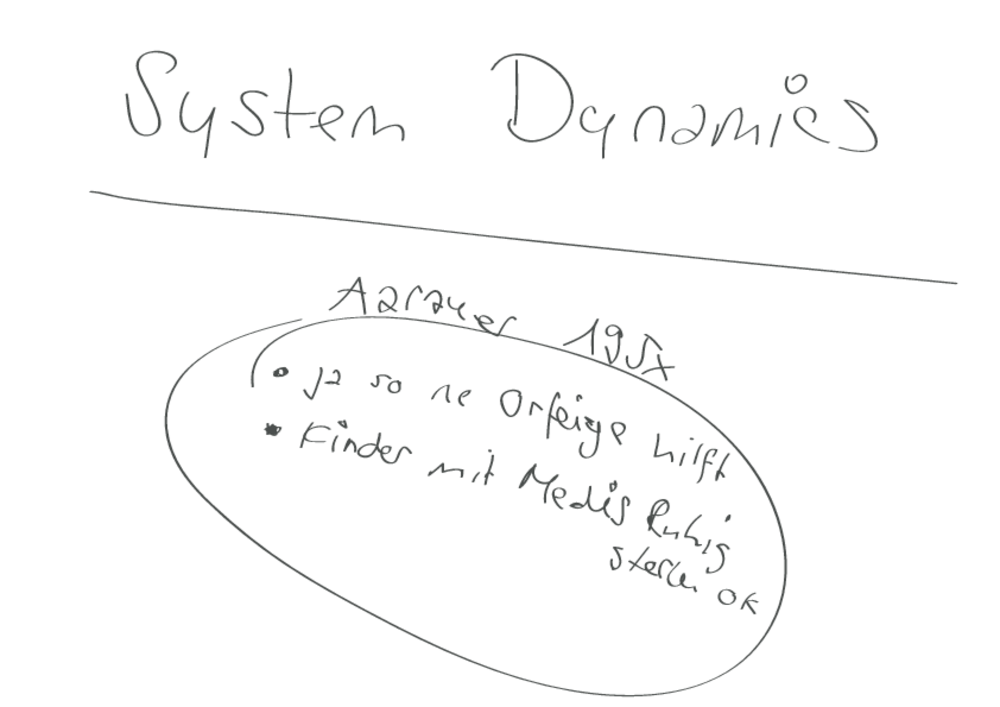 System Dynamics
Aarauer 195x
• ja so ne Orfeige hilft
• Kinder mit Medis Ruhig
stellen OK